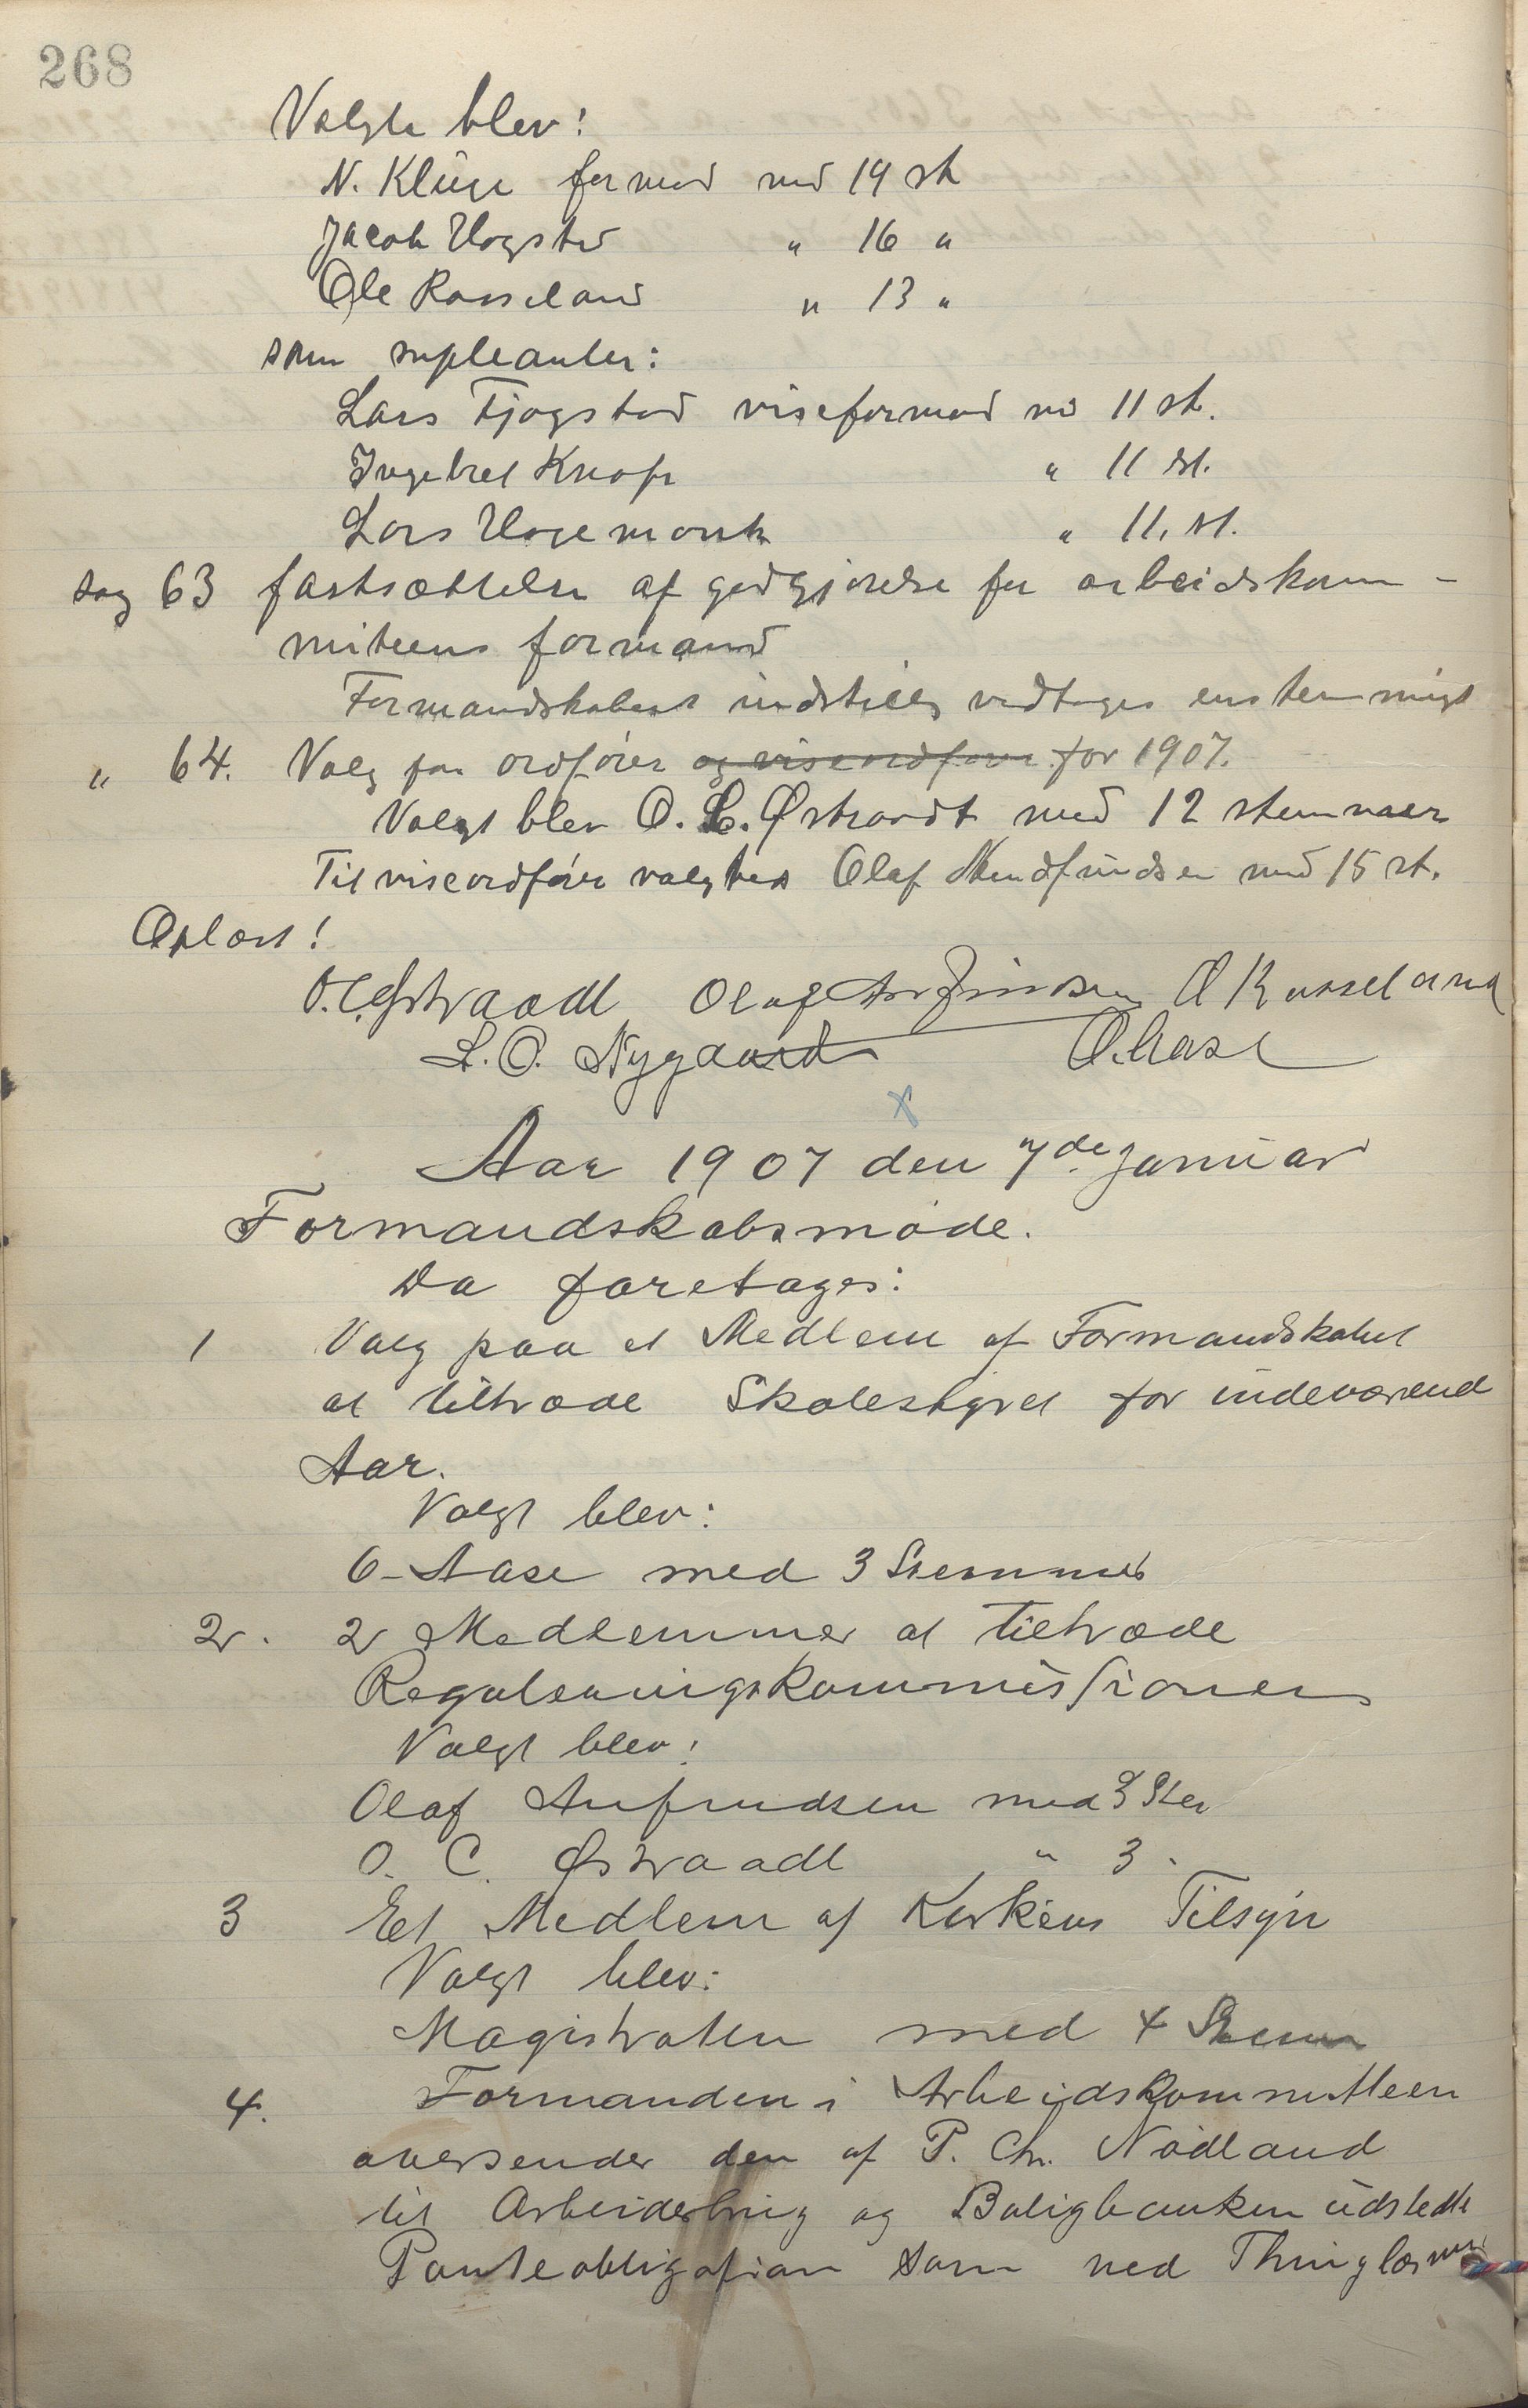 268
Valgte blev:
N. Klüge formand med 19 st
Jacob Hogstad " 16 "
Ole Rosseland " 13 "
som supleanter:
Lars Tjogstad viseformand med 11 st.
Ingebret Knoph " 11 st.
Lars Hagemark " 11. st.
sag 63 fastsættelse af godtgjørelse for arbeidskom-
miteens formand
Formandskabets indstillg vedtages enstemmigt
" 64. Valg paa ordfører og viseordfører for 1907.
Valgt blev O. C. Østraadt med 12 stemmer
Til viseordfører valgtes Olaf med 15 st.
Oplæst!
O. C. Østraadt Olaf Anfindsen O Rosseland
L. O. Nygaard O. Aase
Aar 1907 den 7de Januar
Formandskabsmøde.
Da foretages:
1 Valg paa et Medlem af Formandskabet
at tiltræde Skolestyret for indeværend
Aar.
Valgt blev:
O. Aase med 3 Stemmer
2. 2 Medlemmer at tiltræde
Reguleringskommissionen
Valgt blev:
Olaf Anfindsen med 3 Ster
O. C. Østraadt " 3.
3 Et Medlem af Kirkens Tilsyn
Valgt blev:
Magistraten med 4 Stem
4. Formanden i Arbeidskommitteen
oversender den af P. Chr. Nödland
til Arbeiderbrug og Boligbanken udstedte
Panteobligasion som ved Thinglæsnin